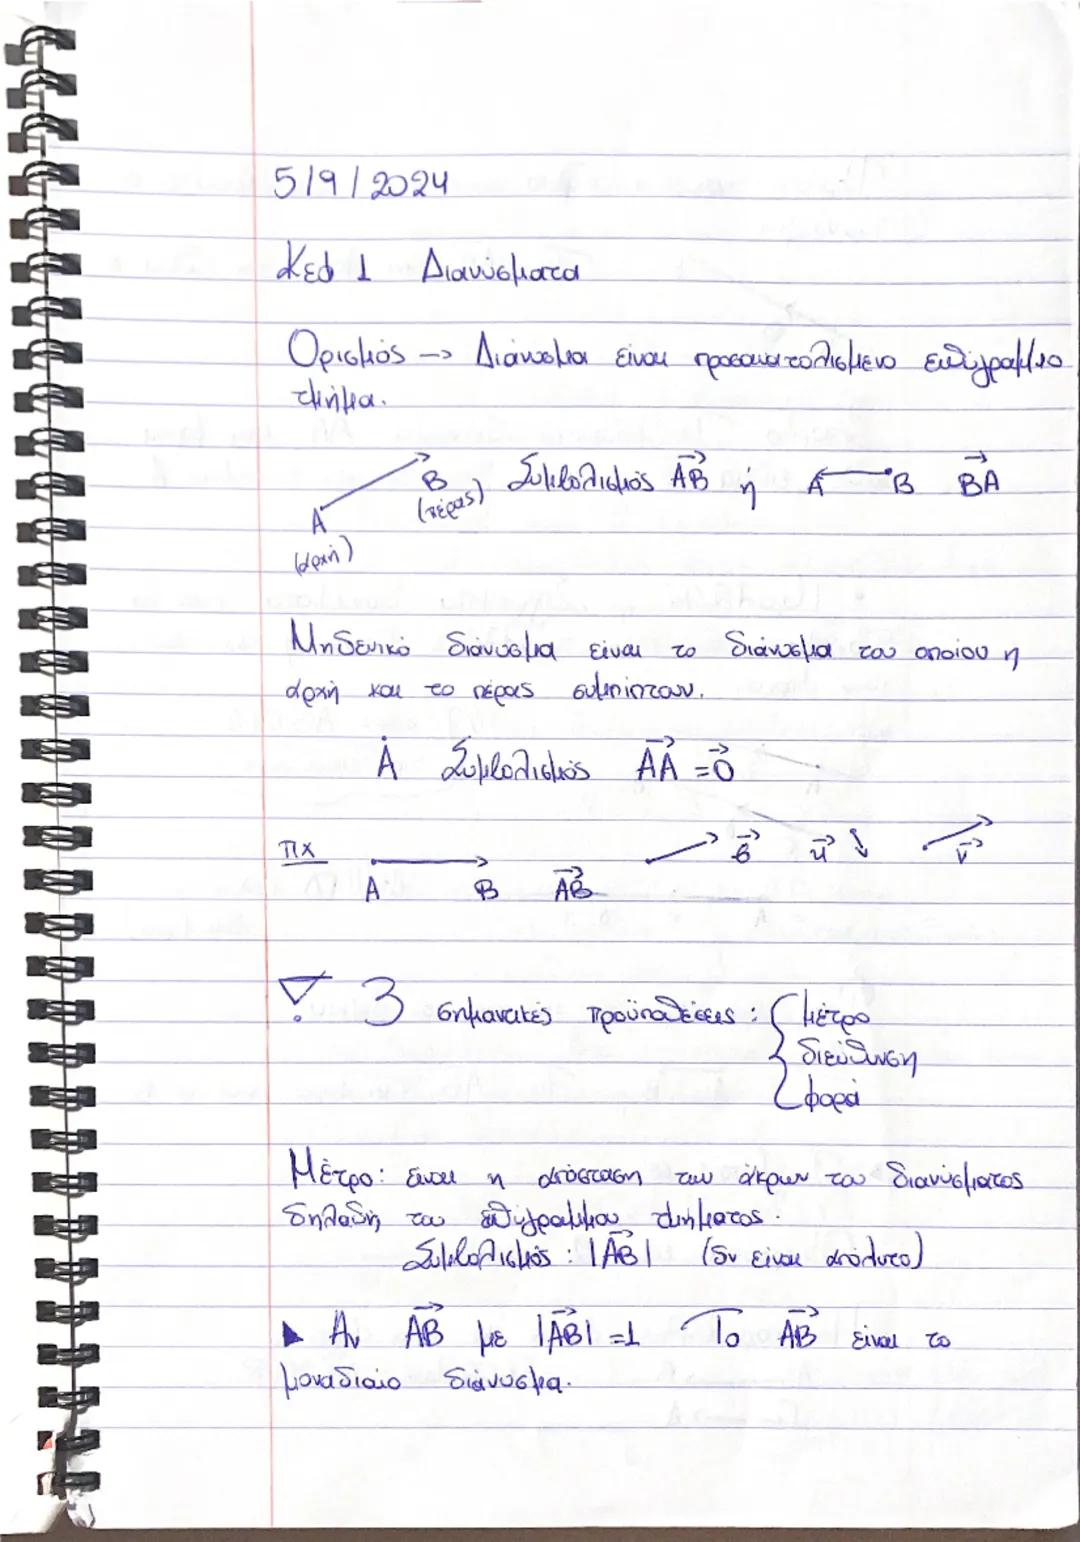 5/9/2024
Κεφ 1 Διανύσματα
Ορισμός → Διάνυσμα είναι προσανατολισμένο ευθύγραμμο
τμήμα.
A (αρχή) B (πέρας) Συμβολισμός $\overrightarrow{AB}$ ή A B $\overrightarrow{BA}$
Μηδενικό διάνυσμα είναι το διάνυσμα του οποίου η
αρχή και το πέρας συμπίπτουν.
A Συμβολισμός $\overrightarrow{AA}=\vec{0}$
πχ A B $\overrightarrow{AB}$ $\vec{u}$ $\vec{v}$
! 3 σημαντικές προϋποθέσεις: { μέτρο
διεύθυνση
φορά
Μέτρο: είναι η απόσταση των άκρων του διανύσματος
δηλαδή του ευθύγραμμου τμήματος.
Συμβολισμός: $|\overrightarrow{AB}|$ (δν είναι απόλυτο)
▶ Αν $\overrightarrow{AB}$ με $|\overrightarrow{AB}|=1$ Το $\overrightarrow{AB}$ είναι το
μοναδιαίο διάνυσμα.